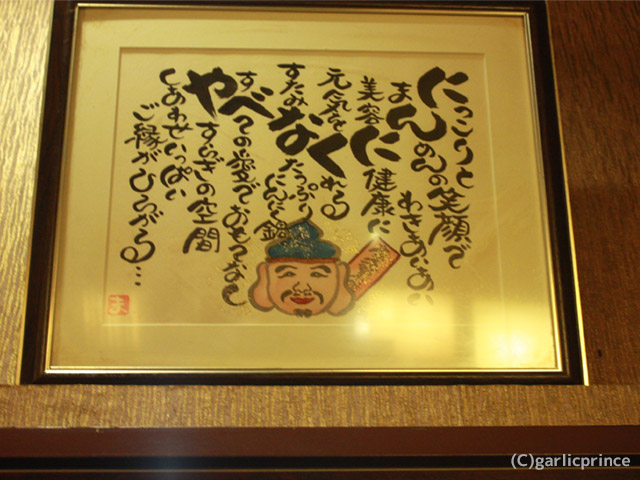 にっこりと
まんめんの笑顔で
わきあいあい
美容に健康に
元気をくれる
すたみなたっぷり
にんにく鍋
すべての愛でおもてなし
やすらぎの空間
しあわせいっぱい
ご縁がひろがる…
ま
(C)garlicprince